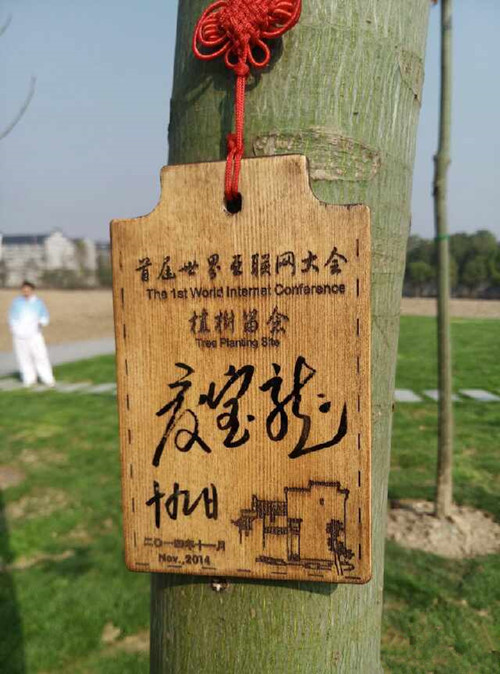 首届世界互联网大会
The 1st World Internet Conference
植樹
Tree Planting Site
夏宝龙
十九日
二〇一四年十一月
Nov.,2014